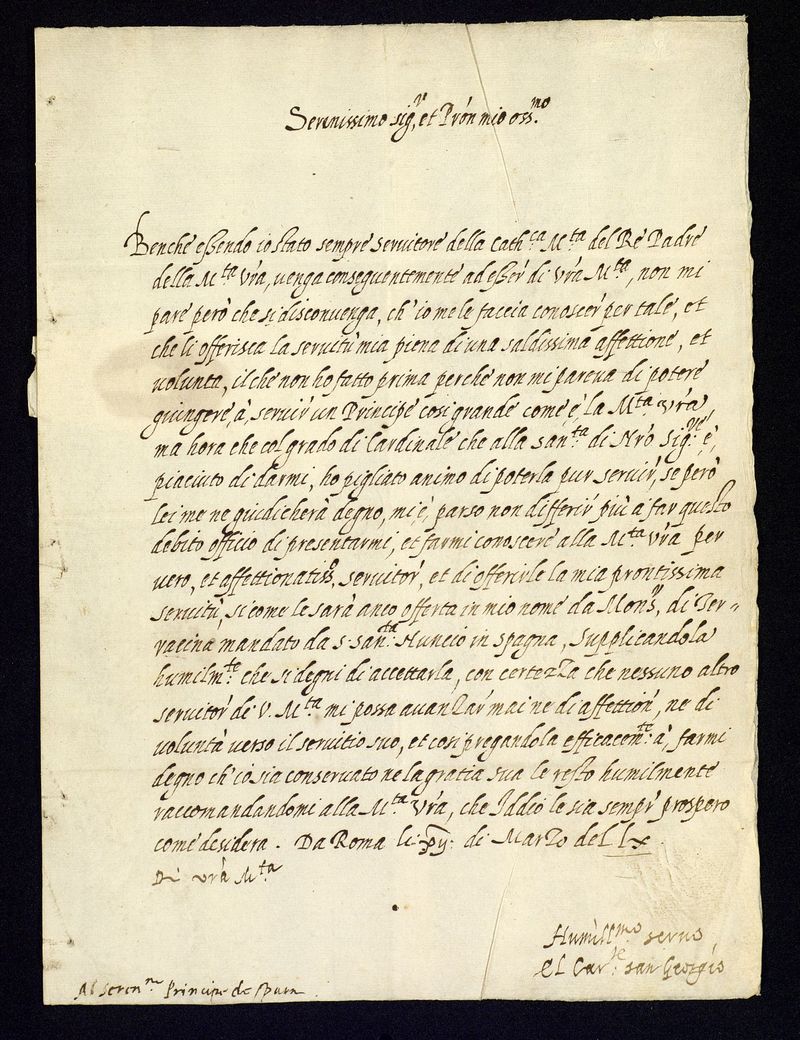 Serenissimo sig.re, et Pr̃on mio oss.mo
Benche essendo io stato sempre seruitore della Cath.ca M.ta del Re Padre
della M.ta Vr̃a, uenga conseguentemente ad esser̃ di Vr̃a M.ta, non mi
pare però che si disconuenga, ch'io mele faccia conoscer̃ per tale, et
che li offerisca la seruitù mia piena di una saldissima affettione, et
uolunta, il che non ho fatto prima perche non mi pareua di potere
giungere, à, seruir̃ un Principe cosi grande come, è, la M.ta vr̃a,
ma hora che col grado di Cardinale che alla San.ta di Nr̃o Sig.re è,
piaciuto di darmi, ho pigliato animo di poterla pur seruir̃, se però
lei me ne giudicherà degno, mi è, parso non differir̃ più a far questo
debito officio di presentarmi, et farmi conoscere alla M.ta Vr̃a per
uero, et affettionatiss.o seruitor̃, et di offerirle la mia prontissima
seruitù, si come le sarà anco offerta in mio nome da Mons.r di Ter=
racina mandato da S. San.ta Nuncio in spagna, Supplicandola
humilm.te che si degni di accettarla, con certezza che nessuno altro
seruitor̃ de V. M.ta mi possa auanzar̃ mai ne di affettioñ, ne di
uoluntà uerso il seruitio suo, et cosi pregandola efficacem.te à, farmi
degno ch'io sia conseruato ne la gratia sua le resto humilmente
raccomandandomi alla M.ta Vr̃a, che Iddio le sia sempr̃ prospero
come desidera. Da Roma li di Marzo del Lx
Di vr̃a M.ta
Humill.mo seruo
El Car.le san Georgio
Al Seren.mo Principe de